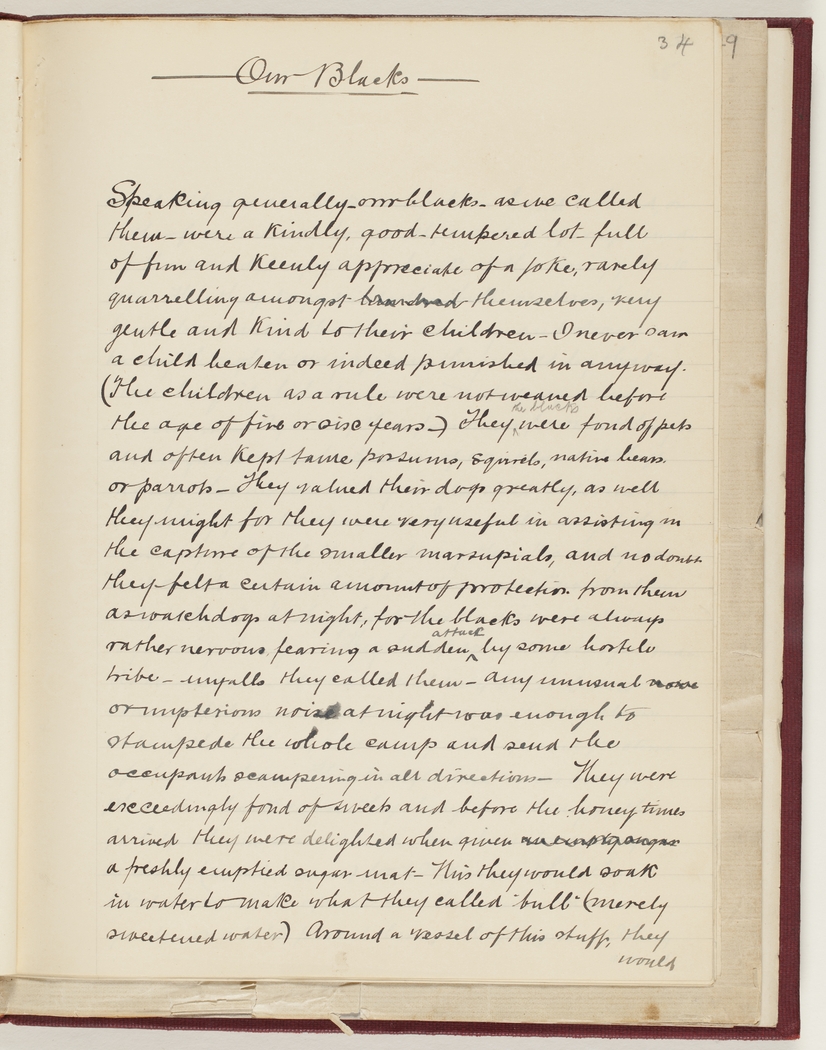 34 9
Our Blacks
Speaking generally - our blacks - as we called
them - were a kindly, good-tempered lot - full
of fun and keenly appreciate of a joke, rarely
quarrelling amongst themselves, very
gentle and kind to their children - I never saw
a child beaten or indeed punished in anyway.
(The children as a rule were not weaned before
the blacks
the age of five or six years -) They were fond of pets
and often kept tame possums, squirels, native bears
or parrots - They valued their dogs greatly, as well
they might for they were very useful in assisting in
the capture of the smaller marsupials, and no doubt
they felt a certain amount of protection from them
as watchdogs at night, for the blacks were always
attack
rather nervous fearing a sudden by some hostile
tribe - myalls they called them - any unusual noise
or mysterious noise at night was enough to
stampede the whole camp and send the
occupants scampering in all directions - They were
exceedingly fond of sweets and before the honey times
arrived they were delighted when given an empty sugar
a freshly emptied sugar mat - This they would soak
in water to make what they called "bull" (merely
sweetened water) Around a vessel of this stuff, they
would